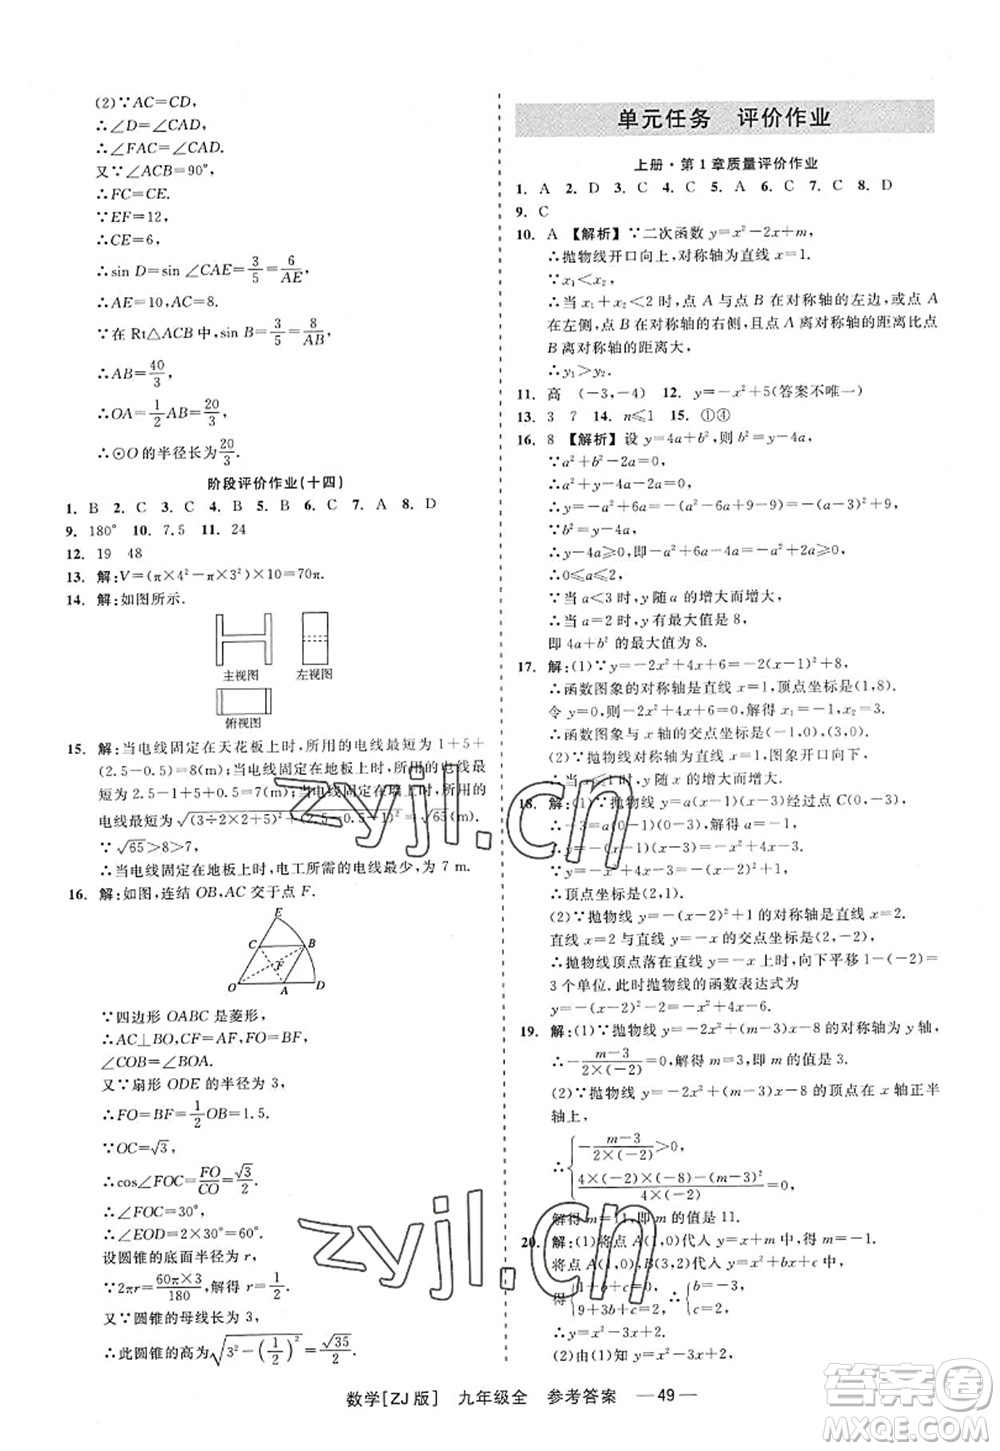 (2)∵AC=CD,
∴∠D=∠CAD,
∴∠FAC=∠CAD.
又∵∠ACB=90°,
∴FC=CE.
∵EF=12,
∴CE=6,
∴sin D=sin∠CAE=3/5=6/AE,
∴AE=10,AC=8.
∵在 Rt△ACB 中,sin B=3/5=8/AB,
∴AB=40/3,
∴OA=1/2AB=20/3,
∴⊙O 的半径长为20/3.
阶段评价作业(十四)
1. B 2. C 3. C 4. B 5. B 6. C 7. A 8. D
9. 180° 10. 7.5 11. 24
12. 19 48
13. 解:V=(π×4²-π×3²)×10=70π.
14. 解:如图所示.
主视图 左视图
俯视图
15. 解:当电线固定在天花板上时,所用的电线最短为 1+5+
(2.5-0.5)=8(m);当电线固定在地板上时,所用的电线
最短为 2.5-1+5+0.5=7(m);当电线固定在墙上时,所用的
电线最短为√((3÷2×2+5)²+(2.5-0.5-1)²)=√65(m).
∵√65>8>7,
∴当电线固定在地板上时,电工所需的电线最短,为 7 m.
16. 解:如图,连结 OB,AC 交于点 F.
E
C B
F
O A D
∵四边形 OABC 是菱形,
∴AC⊥BO,CF=AF,FO=BF,
∠COB=∠BOA.
又∵扇形 ODE 的半径为 3,
∴FO=BF=1/2OB=1.5.
∵OC=√3,
∴cos∠FOC=FO/CO=√3/2.
∴∠FOC=30°,
∴∠EOD=2×30°=60°.
设圆锥的底面半径为 r,
∵2πr=60π×3/180,解得 r=1/2.
又∵圆锥的母线长为 3,
∴此圆锥的高为√(3²-(1/2)²)=√35/2.
单元任务 评价作业
上册·第 1 章质量评价作业
1. A 2. D 3. C 4. C 5. A 6. C 7. C 8. D
9. C
10. A 【解析】∵二次函数 y=x²-2x+m,
∴抛物线开口向上,对称轴为直线 x=1.
∵x₁<x₂,
∴当 x₁+x₂<2 时,点 A 与点 B 在对称轴的左边,或点 A
在左侧,点 B 在对称轴的右侧,且点 A 离对称轴的距离比点
B 离对称轴的距离大,
∴y₁>y₂.
11. 高 (-3,-4) 12. y=-x²+5(答案不唯一)
13. 3 7 14. n≤1 15. ①④
16. 8 【解析】设 y=4a+b²,则 b²=y-4a,
∵a²+b²-2a=0,
∴a²+y-4a-2a=0,
∴y=-a²+6a=-(a²-6a)=-(a-3)²+9,
∵b²=y-4a,
∴y-4a≥0,即-a²+6a-4a≥0,
∴0≤a≤2,
∵当 a<3 时,y 随 a 的增大而增大,
∴当 a=2 时,y 有最大值是 8,
即 4a+b² 的最大值为 8.
17. 解:(1)∵y=-2x²+4x+6=-2(x-1)²+8,
∴函数图象的对称轴是直线 x=1,顶点坐标是(1,8).
令 y=0,则-2x²+4x+6=0,解得 x₁=-1,x₂=3.
∴函数图象与 x 轴的交点坐标是(-1,0),(3,0).
(2)∵抛物线对称轴为直线 x=1,图象开口向下,
∴当 x≤1 时,y 随 x 的增大而增大.
18. 解:(1)∵抛物线 y=a(x-1)(x-3)经过点 C(0,-3),
∴-3=a(0-1)(0-3),
∴a=-1,
∴y=-(x-1)(x-3)=-x²+4x-3=-(x-2)²+1,
∴顶点坐标是(2,1).
(2)∵抛物线 y=-(x-2)²+1 的对称轴为直线 x=2.
直线 x=2 与直线 y=-x 的交点坐标是(2,-2),
∴抛物线顶点落在直线 y=-x 上时,向下平移 1-(-2)=
3 个单位.此时抛物线的函数表达式为
y=-(x-2)²-2=-x²+4x-6.
19. 解:(1)∵抛物线 y=-2x²+(m-3)x-8 的对称轴为 y 轴,
∴-(m-3)/(2×(-2))=0,解得 m=3,即 m 的值是 3.
(2)∵抛物线 y=-2x²+(m-3)x-8 的顶点在 x 轴正半
轴上,
∴{-(m-3)/(2×(-2))>0,
(4×(-2)×(-8)-(m-3)²)/(4×(-2))=0,
解得 m=11,即 m 的值是 11.
20. 解:(1)将点 A(1,0)代入 y=x+m 中,得 m=-1.
将点 A(1,0),B(3,2)代入 y=x²+bx+c 中,
得{1+b+c=0, 9+3b+c=2, ∴{b=-3, c=2,
∴y=x²-3x+2.
(2)由(1)可知,y=x-1,y=x²-3x+2.
数学[ZJ 版] 九年级全 参考答案 —49—
zyjl.cn
zyjl.cn
答案圈
MXQE.COM